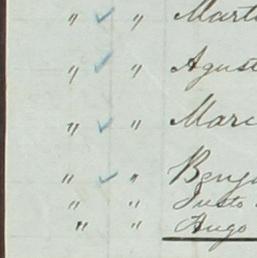 " ✓ " Mart
" ✓ " Agust
" ✓ " Marc
" ✓ " Benj
" " Justo
" " Hugo